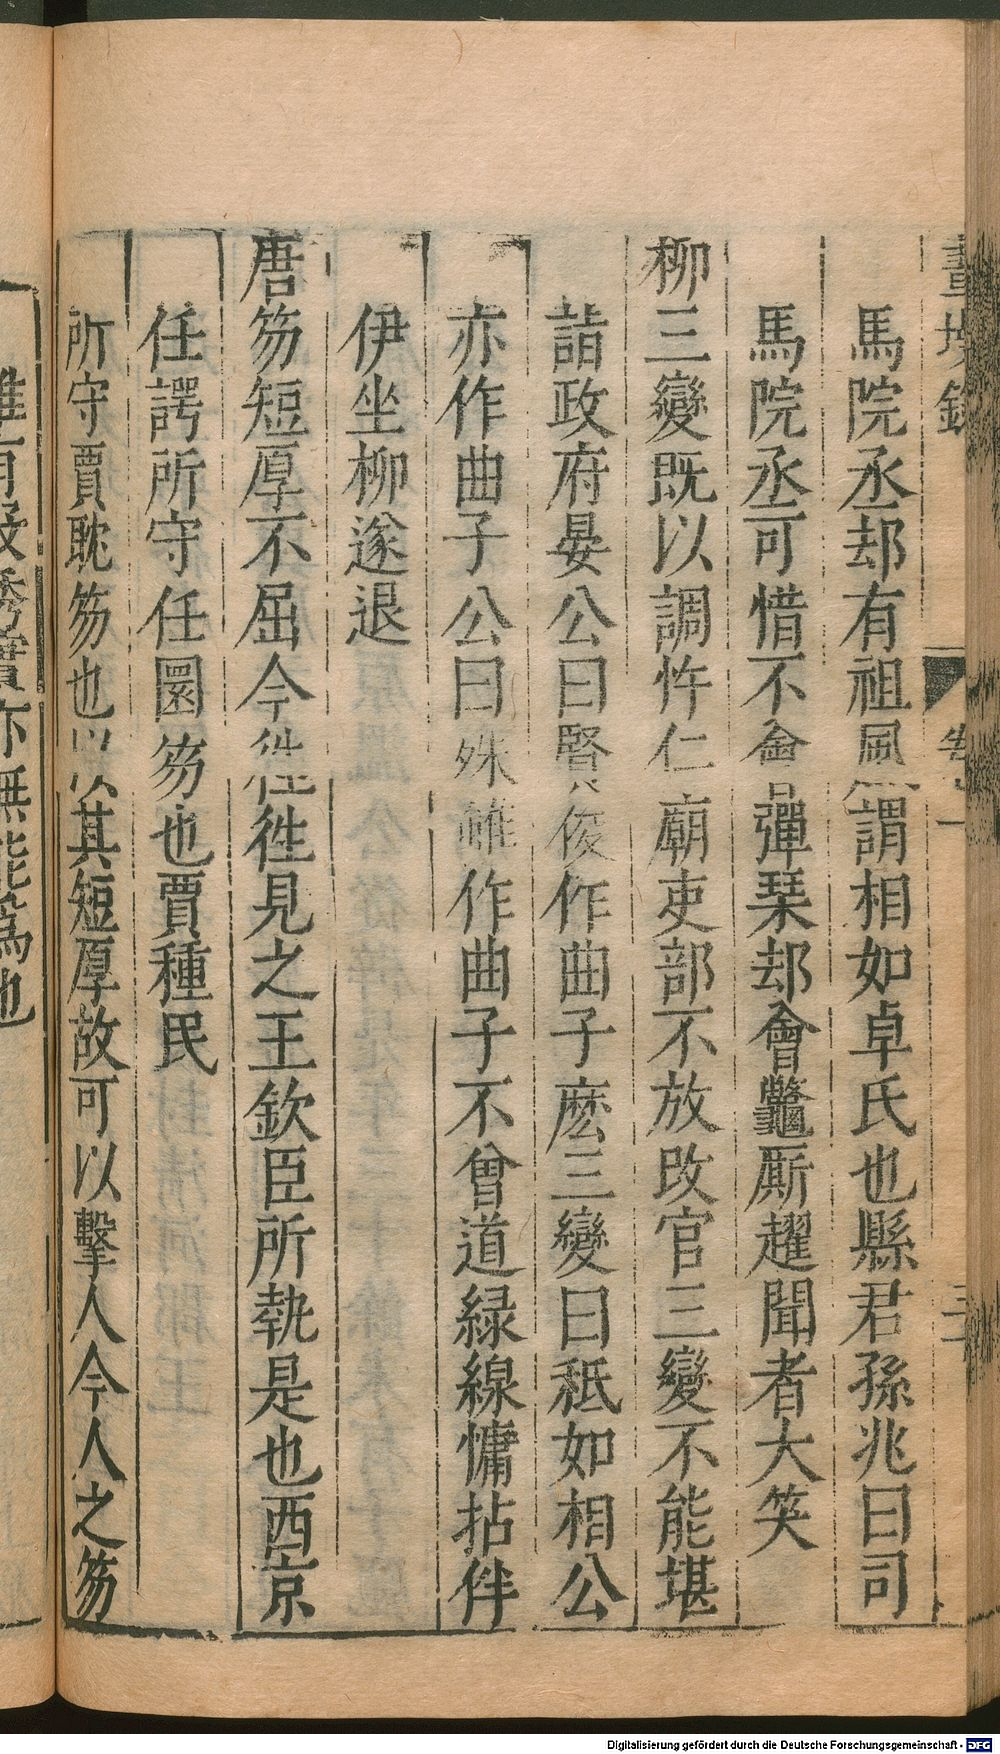 畫墁錄 卷一
馬院丞却有祖風謂相如卓氏也縣君孫兆曰司
馬院丞可惜不會彈琹却會鼈厮趯聞者大笑
柳三變既以調忤仁廟吏部不放改官三變不能堪
詣政府晏公曰賢俊作曲子麽三變曰秪如相公
亦作曲子公曰殊雖作曲子不曾道綠線慵拈伴
伊坐柳遂退
唐笏短厚不屈今徃徃見之王欽臣所執是也西京
任諤所守任圜笏也賈種民
所守賈耽笏也以其短厚故可以擊人今人之笏
亦無能爲也
Digitalisierung gefördert durch die Deutsche Forschungsgemeinschaft - DFG